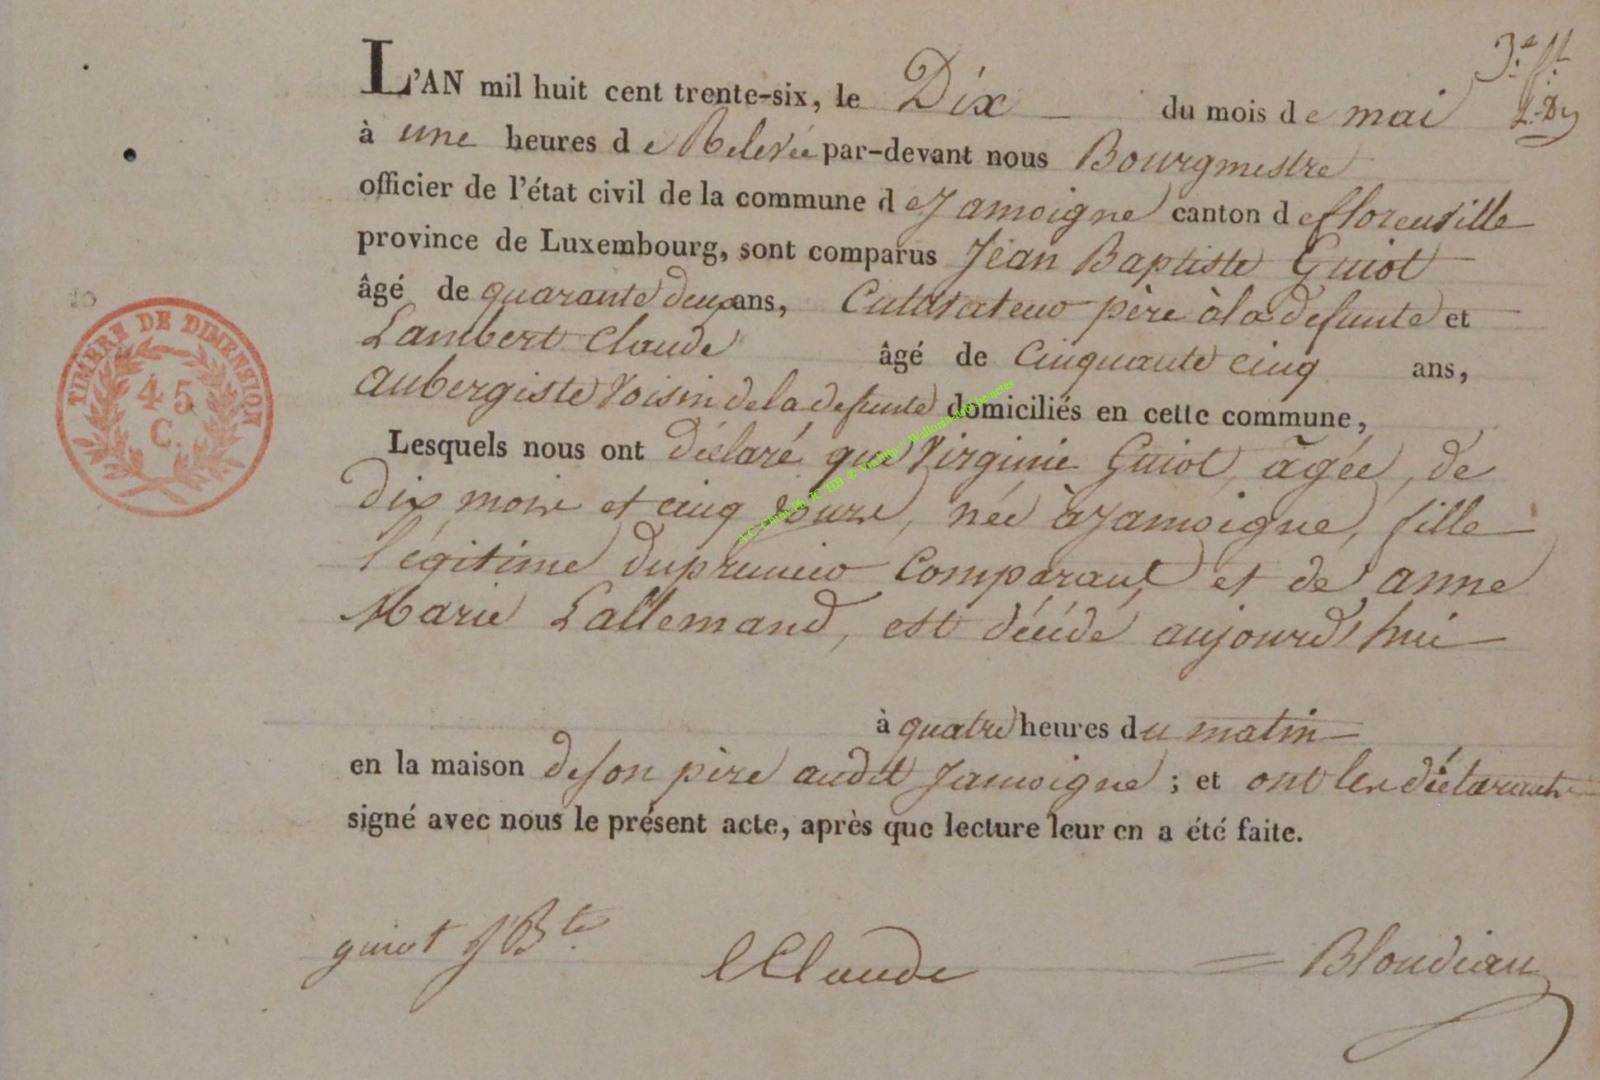 3.e f.t
L'AN mil huit cent trente-six, le Dix du mois de mai
à une heures de Relevée par-devant nous Bourgmestre
officier de l'état civil de la commune de Jamoigne canton de florenville
province de Luxembourg, sont comparus Jean Baptiste Guiot
âgé de quarante deux ans, Cultivateur père à la defunte et
Lambert Claude âgé de Cinquante cinq ans,
aubergiste Voisin de la defunte domiciliés en cette commune,
Lesquels nous ont déclaré que Virginie Guiot, agée, de
dix mois et cinq jours, née à Jamoigne, fille
légitime du premier Comparant et de anne
Marie Lallemand, est décédé aujourd'hui
à quatre heures du matin
en la maison de son père audit Jamoigne ; et ont les déclarants
signé avec nous le présent acte, après que lecture leur en a été faite.
guiot J Bte
LClaude
Bloudiau
TIMBRE DE DIMENSION
45
C.